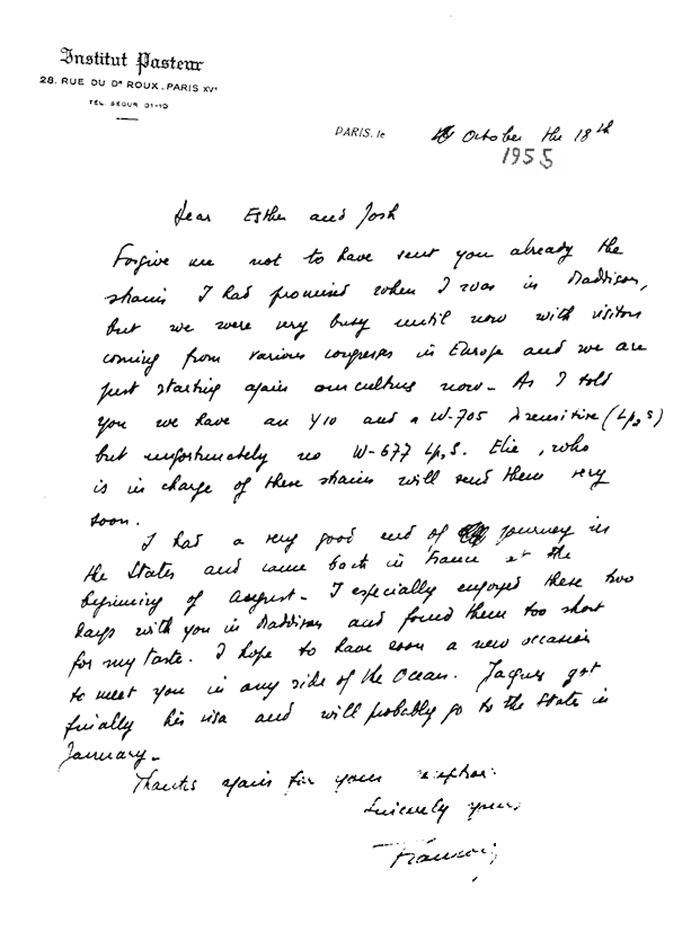 Institut Pasteur
28. RUE DU Dr ROUX. PARIS XVe
TEL. SEGUR 01-10
PARIS, le October the 18th
1955
Dear Esther and Josh
Forgive me not to have sent you already the
strains I had promised when I was in Maddison,
but we were very busy until now with visitors
coming from various congresses in Europe and we are
just starting again our cultures now - As I told
you we have an Y10 and a W-705 λ sensitive (Lp2 s)
but unfortunately no W-677 Lp2 S. Elie, who
is in charge of these strains will send them very
soon.
I had a very good end of journey in
the States and came back in France at the
beginning of August - I especially enjoyed these two
days with you in Maddison and found them too short
for my taste. I hope to have soon a new occasion
to meet you in any side of the Ocean. Jacques got
finally his visa and will probably go to the States in
January -
Thanks again for your reception.
Sincerely yours,
Francois